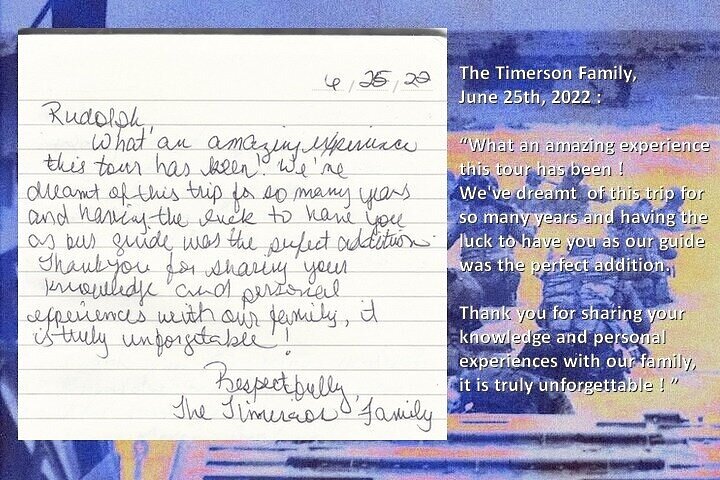 6, 25, 22
Rudolph
What an amazing experience
this tour has been! We've
dreamt of this trip for so many years
and having the luck to have you
as our guide was the perfect addition.
Thank you for sharing your
knowledge and personal
experiences with our family, it
is truly unforgetable!
Respectfully,
The Timerson Family
The Timerson Family,
June 25th, 2022 :
“What an amazing experience
this tour has been !
We've dreamt of this trip for
so many years and having the
luck to have you as our guide
was the perfect addition.
Thank you for sharing your
knowledge and personal
experiences with our family,
it is truly unforgettable ! “